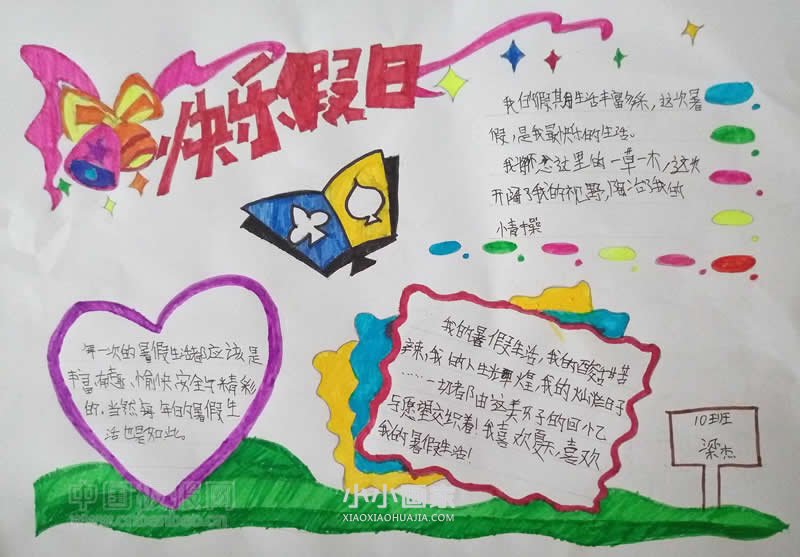 快乐假日
我在假期生活丰富多采,这次暑
假,是我最快乐的生活。
我断恋这里的一草一木,这次
开阔了我的视野,陶冶了我的
情操
每一次的暑假生活都应该是
丰富,有趣,愉快,安全与精彩
的,当然每年的暑假生
活也是如此。
我的暑假生活,我的酸甜苦
辣,我的人生辉煌,我的灿烂日子
......一切都由这美好的回忆
与愿望交织着!我喜欢夏天,喜欢
我的暑假生活!
10班
梁杰
中国板报网
www.cnbanbao.cn
小小画家
XIAOXIAOHUAJIA.COM